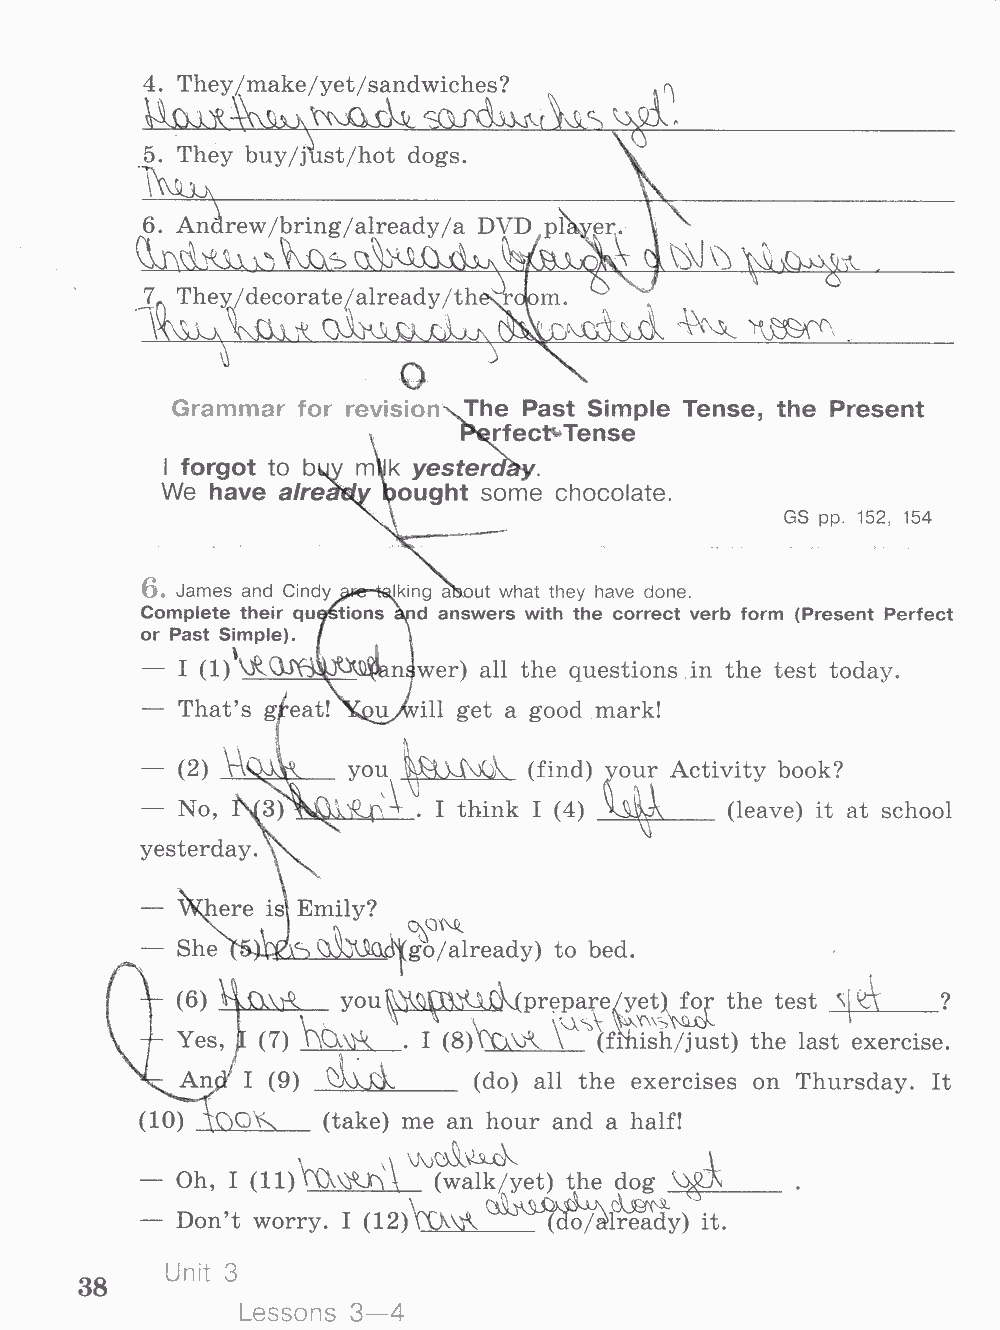 4. They/make/yet/sandwiches?
Have they made sandwiches yet?
5. They buy/just/hot dogs.
They
6. Andrew/bring/already/a DVD player.
Andrew has already brought a DVD player.
7. They/decorate/already/the room.
They have already decorated the room.
Grammar for revision The Past Simple Tense, the Present
Perfect Tense
I forgot to buy milk yesterday.
We have already bought some chocolate.
GS pp. 152, 154
6. James and Cindy are talking about what they have done.
Complete their questions and answers with the correct verb form (Present Perfect
or Past Simple).
— I (1) 've answered (answer) all the questions in the test today.
— That's great! You will get a good mark!
— (2) Have you found (find) your Activity book?
— No, I (3) haven't. I think I (4) left (leave) it at school
yesterday.
— Where is Emily?
gone
— She (5) has already (go/already) to bed.
— (6) Have you prepared (prepare/yet) for the test yet ?
just finished
— Yes, I (7) have . I (8) have (finish/just) the last exercise.
— And I (9) did (do) all the exercises on Thursday. It
(10) took (take) me an hour and a half!
walked
— Oh, I (11) haven't (walk/yet) the dog yet .
already done
— Don't worry. I (12) have (do/already) it.
38
Unit 3
Lessons 3—4